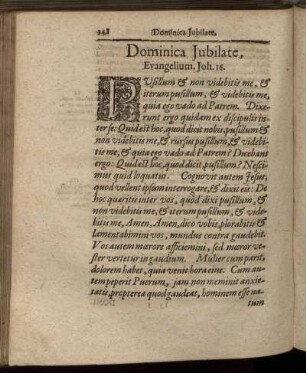 248 Dominica Jubilate.
Dominica Jubilate,
Evangelium, Joh. 16.
PUsillum & non videbitis me, &
iterum pusillum, & videbitis me,
quia ego vado ad Patrem. Dixe-
runt ergo quidam ex discipulis in-
ter se: Quid est hoc, quod dicit nobis, pusillum &
non videbitis me, & rursus pusillum, & videbi-
tis me, & quia ego vado ad Patrem? Dicebant
ergo: Quid est hoc, quod dicit, pusillum? Nesci-
mus quid loquatur. Cognovit autem Jesus,
quod vellent ipsum interrogare, & dixit eis: De
hoc quæritis inter vos, quod dixi pusillum, &
non videbitis me, & iterum pusillum, & vide-
bitis me, Amen, Amen, dico vobis, plorabitis &
lamentabimini vos, mundus contra gaudebit.
Vos autem mœrore afficiemini, sed mœror ve-
ster vertetur in gaudium. Mulier cum parit,
dolorem habet, quia venit hora ejus. Cum au-
tem peperit Puerum, jam non meminit anxie-
tatis, propterea quod gaudeat, hominem esse na-
tum